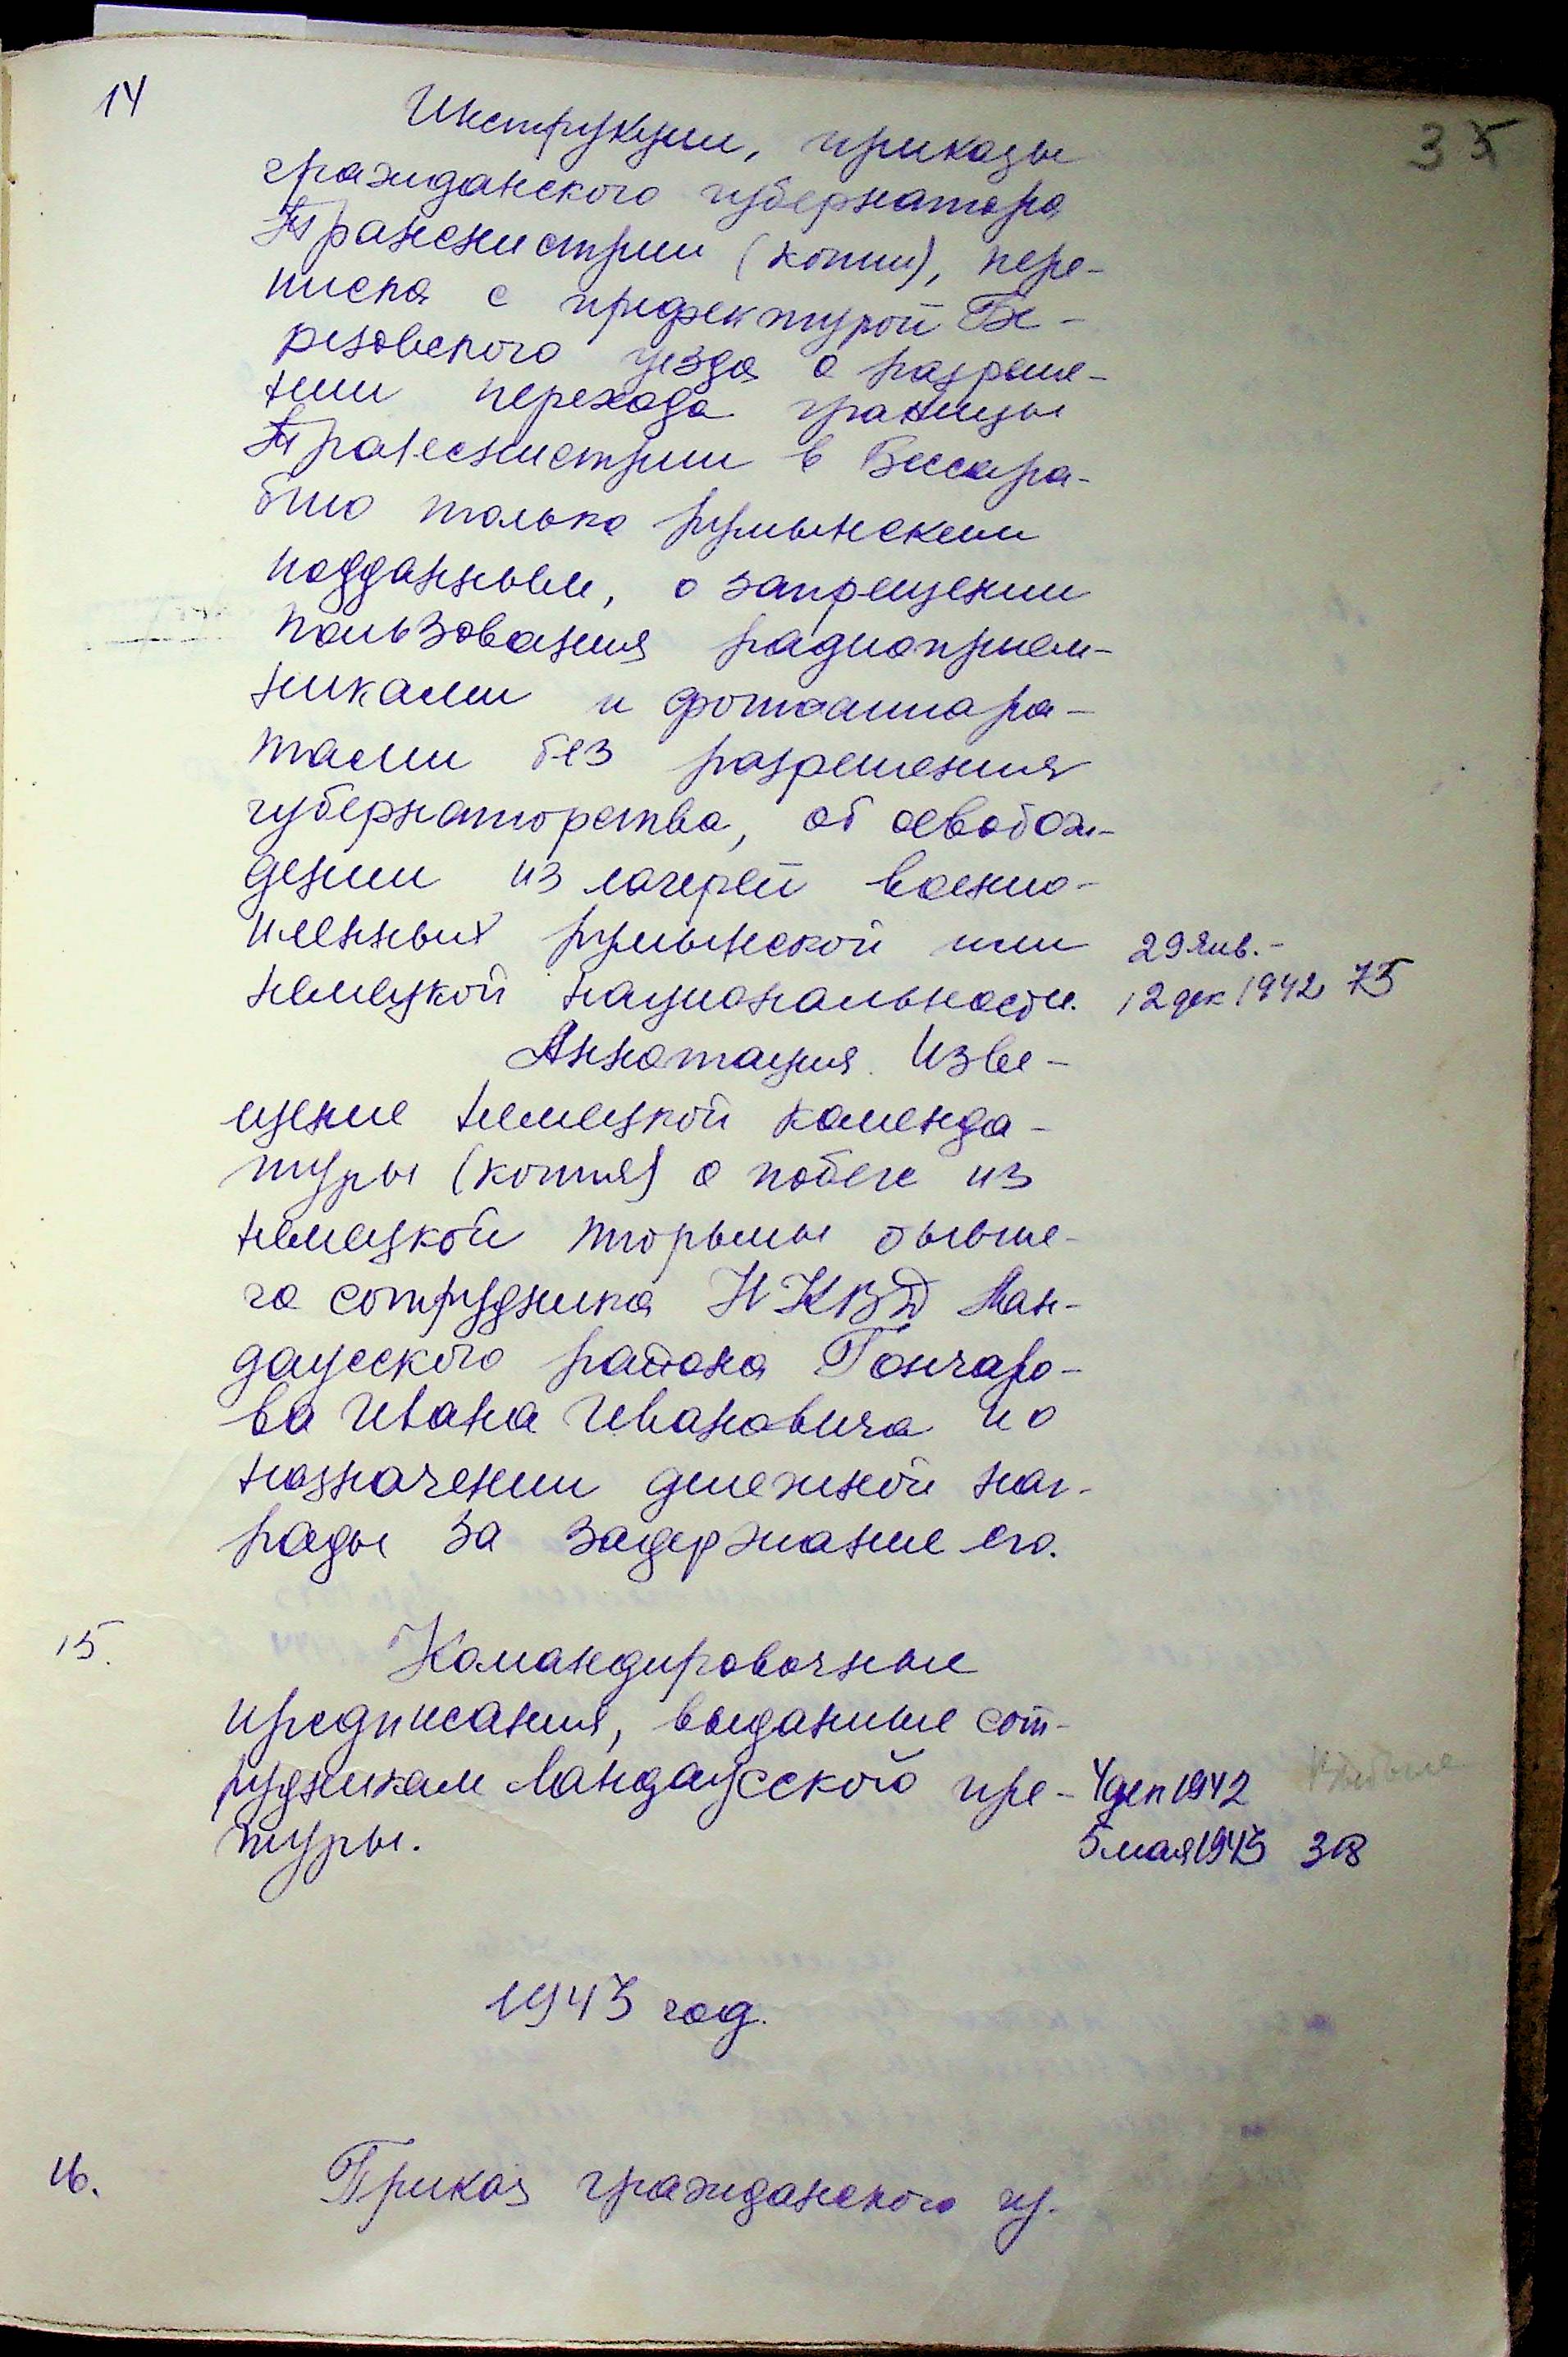 35
14 Инструкции, приказы
гражданского губернатора
Транснистрии (копии), пере-
писка с префектурой Бе-
резовского уезда о разреше-
нии перехода границы
Транснистрии в Бессара-
бию только румынским
подданным, о запрещении
пользования радиоприем-
никами и фотоаппара-
тами без разрешения
губернаторства, об освобож-
дении из лагерей военно-
пленных румынской или 29 янв.-
немецкой национальности. 12 дек 1942 75
Аннотация. Изве-
щение немецкой коменда-
туры (копия) о побеге из
немецкой тюрьмы бывше-
го сотрудника НКВД Лан-
дауского района Гончаро-
ва Ивана Ивановича и о
назначении денежной наг-
рады за задержание его.
15. Командировочные
предписания, выданные сот-
рудникам Ландаусской пре- 4 дек 1942
туры. 5 мая 1943 318
1943 год.
16. Приказ гражданского гу-